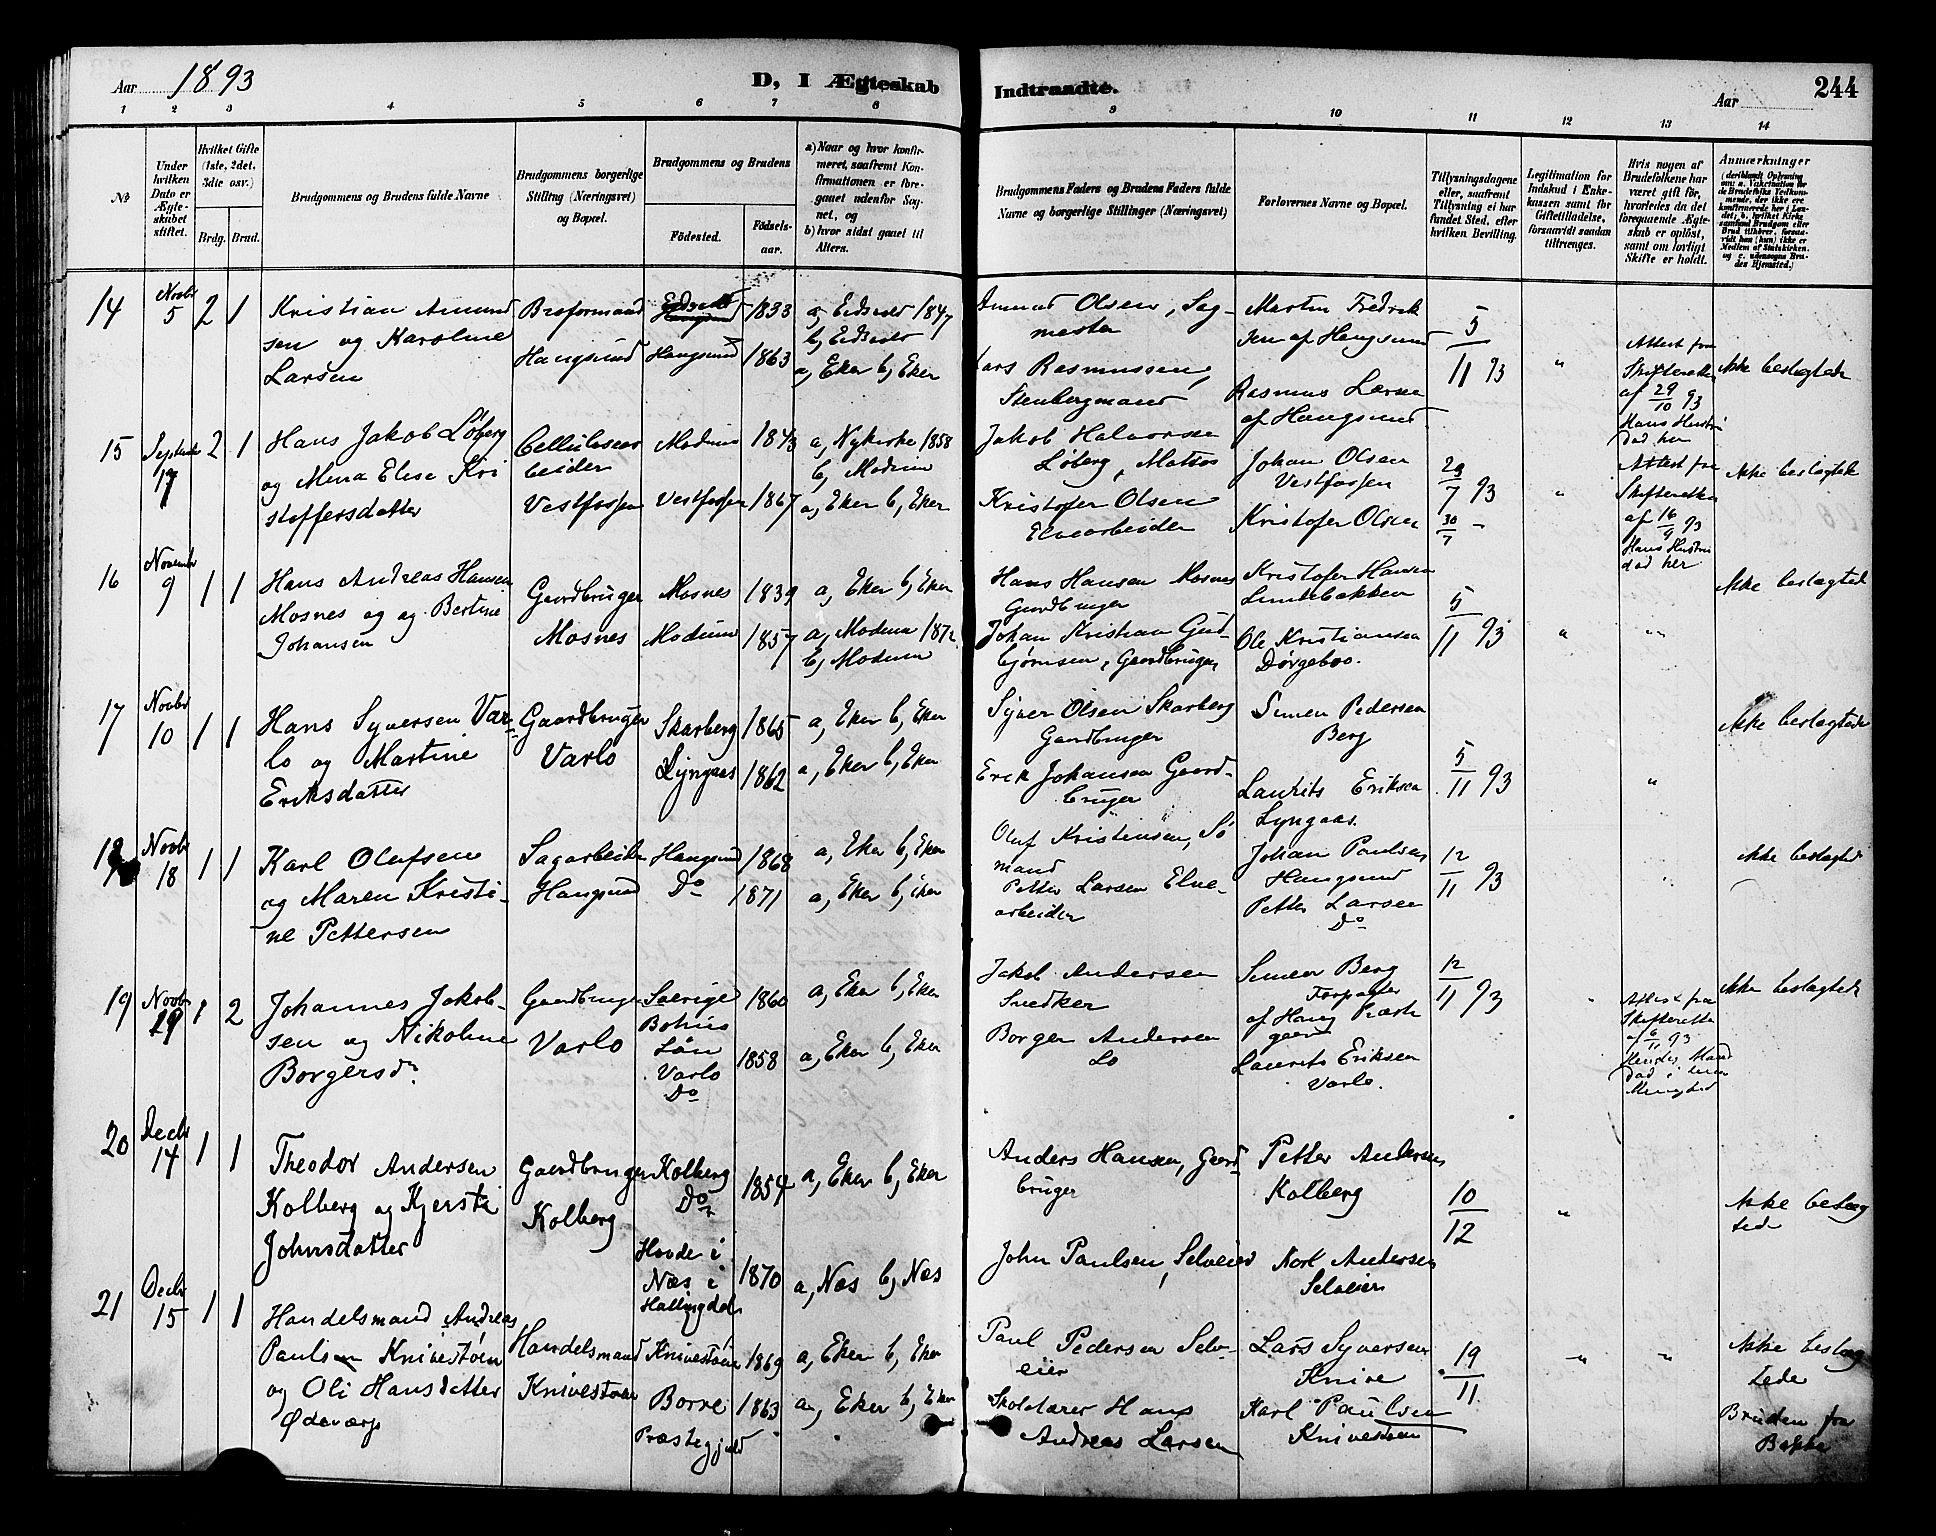 Aar 1893
D, I Ægteskab Indtraadte.
Aar
244
1 2 3 4 5 6 7 8 9 10 11 12 13 14
№
Under hvilken Dato er Ægteskabet stiftet.
Hvilket Gifte (1ste, 2det, 3die osv.)
Brdg. Brud.
Brudgommens og Brudens fulde Navne
Brudgommens borgerlige Stilling (Næringsvei) og Bopæl.
Brudgommens og Brudens
Fødested.
Fødselsaar.
a) Naar og hvor konfirmeret, saafremt Konfirmationen er foregaaet udenfor Sognet, og
b) hvor sidst gaaet til Alters.
Brudgommens Faders og Brudens Faders fulde Navne og borgerlige Stillinger (Næringsvei)
Forlovernes Navne og Bopæl.
Tillysningsdagene eller, saafremt Tillysning ei har fundet Sted, efter hvilken Bevilling.
Legitimation for Indskud i Enkekassen samt for Giftetilladelse, forsaavidt saadan tiltrænges.
Hvis nogen af Brudefolkene har været gift før, hvorledes da det foregaaende Ægteskab er opløst, samt om lovligt Skifte er holdt.
Anmærkninger
14 Novbr 5 2 1
Kristian Amund
sen og Karoline
Larsen
Broformand
Haugsund
Eidsvold 1833
Haugsund 1863
a, Eidsvold 1847
b, Eidsvold
a, Eker b, Eker
Amund Olsen, Sag-
mester
Lars Rasmussen,
Stenbergmand
Martin Fredrik
sen af Haugsund
Rasmus Larsen
af Haugsund
5/11 93
"
Attest fra
Skifteretten
af 29/10 93
Hans Hustru
død her
Ikke beslægtede
15 September 17 2 1
Hans Jakob Løberg
og Mina Elise Kri
stoffersdatter
Cellulosear
beider
Vestfossen
Modum 1843
Vestfossen 1867
a, Nykirke 1858
b, Modum
a, Eker b, Eker
Jakob Halvorsen
Løberg,
Kristofer Olsen
Elvearbeider
Johan Olsen
Vestfossen
Kristofer Olsen
23/7 93
30/7 -
"
Attest fra
Skifteretten
af 16/9 93
Hans Hustru
død her
Ikke beslægtede
16 November 9 1 1
Hans Andreas Hansen
Mosnes og og Bertine
Johansen
Gaardbruger
Mosnes
Mosnes 1839
Modum 1857
a, Eker b, Eker
a, Modum 1872
b, Modum
Hans Hansen Mosnes
Gaardbruger
Johan Kristian Gud-
bjørnsen, Gaardbruger
Kristofer Hansen
Lindebakken
Ole Kristiansen
Dørgeboo.
5/11 93
"
"
Ikke beslægtede
17 Novbr 10 1 1
Hans Syversen Var-
lo og Martine
Eriksdatter
Gaardbruger
Varlo
Skarberg 1865
Lyngaas 1862
a, Eker b, Eker
a, Eker b, Eker
Syver Olsen Skarberg
Gaardbruger
Erik Johansen Gaard-
bruger
Simen Pedersen
Berg
Laurits Eriksen
Lyngaas.
5/11 93
"
Ikke beslægtede
18 Novbr 18 1 1
Karl Olafsen
og Maren Kristi-
ne Pettersen
Sagarbeider
Haugsund
Haugsund 1868
Do 1871
a, Eker b, Eker
a, Eker b, Eker
Oluf Kristensen, Sø
mand
Petter Larsen Elve-
arbeider
Johan Paulsen
Haugsund
Petter Larsen
Do
12/11 93
Ikke beslægted
19 Novbr 29 1 2
Johannes Jakob-
sen og Nikoline
Borgersdr
Gaardbruger
Varlo
Sverige
Bohus
Län 1860
Varlo 1858
Do
a, Eker b, Eker
a, Eker b, Eker
Jakob Andersen
Snedker
Borger Andersen
Lo
Simen Berg
Forpagter
af Haug Præste
gaard
Laurits Eriksen
Varlo.
12/11 93
Attest fra
Skifteretten
af 6/11 93
Hendes Mand
død i
Menighed
Ikke beslægtede
20 Decbr 14 1 1
Theodor Andersen
Kolberg og Kjersti
Johnsdatter
Gaardbruger
Kolberg
Kolberg 1854
Do
Hovde i
Næs i 1870
Hallingdal
a, Eker b, Eker
a, Næs b, Næs
Anders Hansen, Gaard-
bruger
John Paulsen, Selveier
Petter Andersen
Kolberg
Karl Andersen
Selveier
10/12
"
Ikke beslæg
ted
21 Decbr 15 1 1
Handelsmand Andreas
Paulsen Knivestøen
og Oli Hansdatter
Ødeværp
Handelsmand
Knivestøen
Knivestøen 1869
Borre 1863
Præstegjeld
a, Eker b, Eker
a, Eker b, Eker
Paul Pedersen Selv-
eier
Skolelærer Hans
Andreas Larsen
Lars Syversen
Knive
Karl Paulsen
Knivestøen
19/11
"
"
Ikke beslæg
tede
Bruden fra